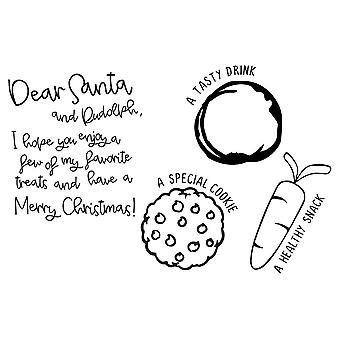 Dear Santa
and Rudolph,
I hope you enjoy a
few of my favorite
treats and have a
Merry Christmas!
A TASTY DRINK
A SPECIAL COOKIE
A HEALTHY SNACK